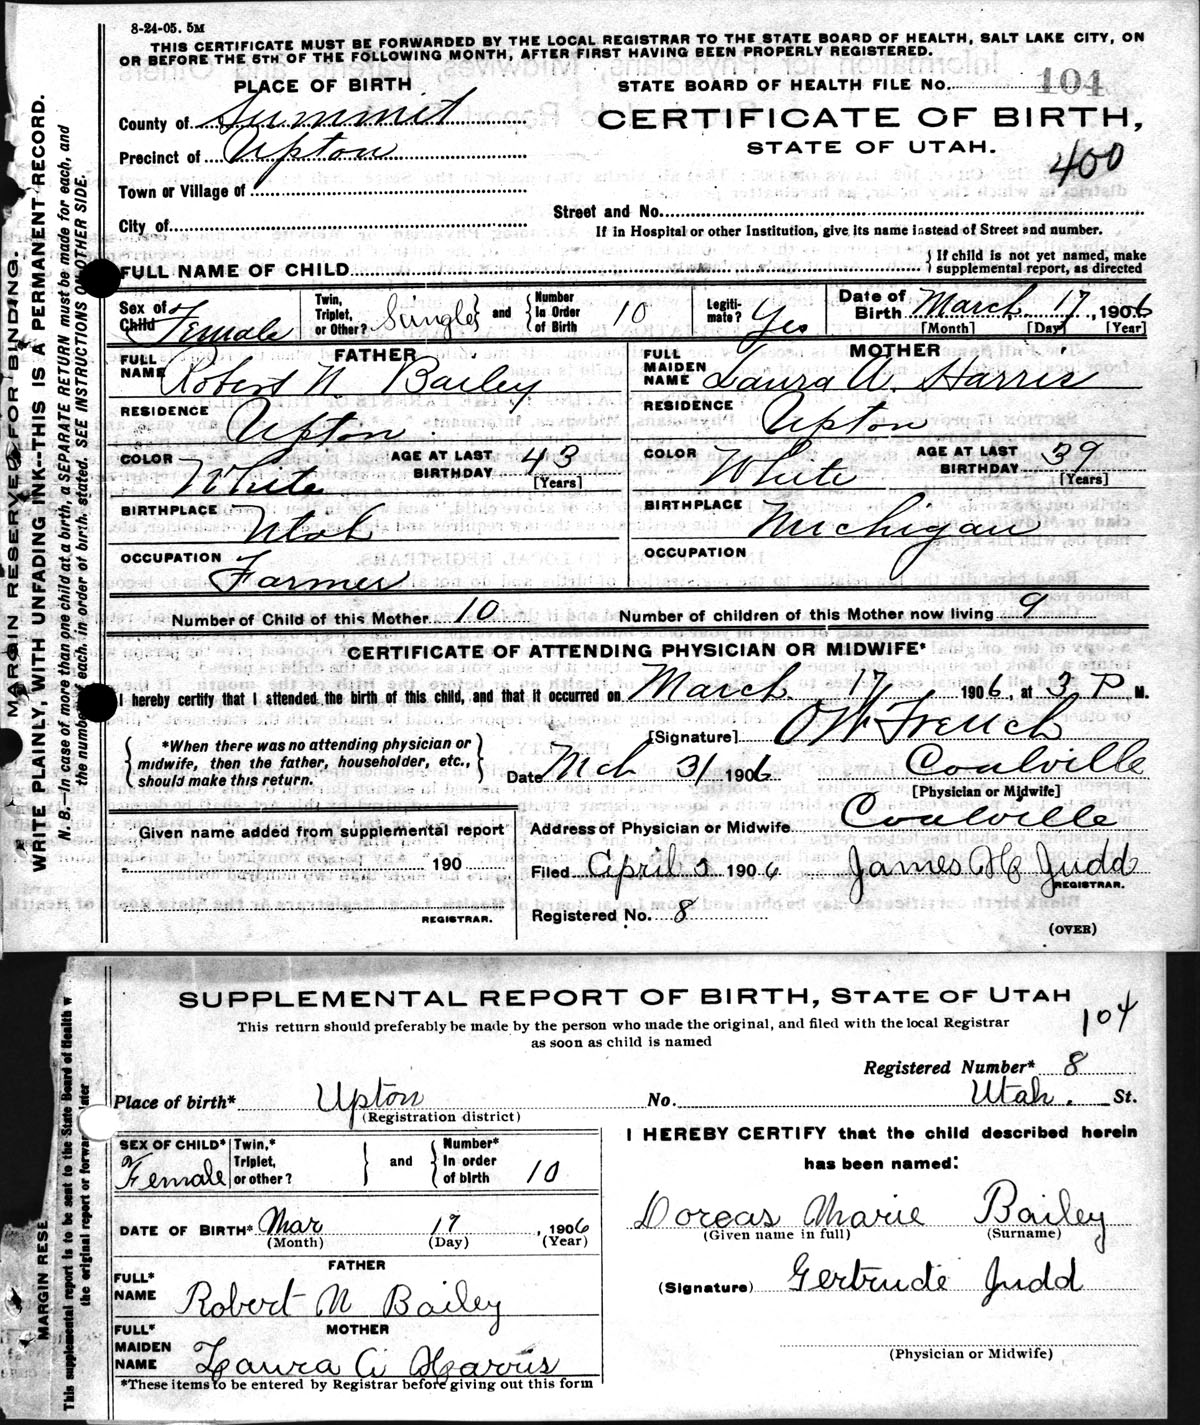 8-24-05. 5M
THIS CERTIFICATE MUST BE FORWARDED BY THE LOCAL REGISTRAR TO THE STATE BOARD OF HEALTH, SALT LAKE CITY, ON
OR BEFORE THE 5TH OF THE FOLLOWING MONTH, AFTER FIRST HAVING BEEN PROPERLY REGISTERED.
PLACE OF BIRTH
STATE BOARD OF HEALTH FILE NO. 104
County of Summit
CERTIFICATE OF BIRTH,
Precinct of Upton
STATE OF UTAH.
400
Town or Village of
Street and No.
City of
If in Hospital or other Institution, give its name instead of Street and number.
FULL NAME OF CHILD
If child is not yet named, make
supplemental report, as directed
Sex of Child Female
Twin, Triplet, or Other? Single and Number In Order of Birth 10
Legiti- mate? Yes
Date of Birth March 17, 1906
[Month] [Day] [Year]
FATHER
FULL NAME Robert N Bailey
RESIDENCE Upton
COLOR White AGE AT LAST BIRTHDAY 43
[Years]
BIRTHPLACE Utah
OCCUPATION Farmer
MOTHER
FULL MAIDEN NAME Laura A. Harris
RESIDENCE Upton
COLOR White AGE AT LAST BIRTHDAY 39
[Years]
BIRTHPLACE Michigan
OCCUPATION
Number of Child of this Mother 10 Number of children of this Mother now living 9
CERTIFICATE OF ATTENDING PHYSICIAN OR MIDWIFE*
I hereby certify that I attended the birth of this child, and that it occurred on March 17 1906, at 3 P M.
*When there was no attending physician or
midwife, then the father, householder, etc.,
should make this return.
[Signature] O W French
Date Mch 31 1906 Coalville
[Physician or Midwife]
Given name added from supplemental report
190
REGISTRAR.
Address of Physician or Midwife Coalville
Filed April 5 1906 James H Judd
REGISTRAR.
Registered No. 8
(OVER)
MARGIN RESERVED FOR BINDING.
WRITE PLAINLY, WITH UNFADING INK--THIS IS A PERMANENT RECORD.
N. B.—In case of more than one child at a birth, a SEPARATE RETURN must be made for each, and
the number each, in order of birth, stated. SEE INSTRUCTIONS ON OTHER SIDE.
SUPPLEMENTAL REPORT OF BIRTH, STATE OF UTAH
104
This return should preferably be made by the person who made the original, and filed with the local Registrar
as soon as child is named
Registered Number* 8
Place of birth* Upton No. Utah. St.
(Registration district)
SEX OF CHILD* Female
Twin,* Triplet, or other? and Number* In order of birth 10
DATE OF BIRTH* Mar 17, 1906
(Month) (Day) (Year)
FATHER
FULL* NAME Robert N Bailey
MOTHER
FULL* MAIDEN NAME Laura A Harris
*These items to be entered by Registrar before giving out this form
I HEREBY CERTIFY that the child described herein
has been named:
Dorcas Marie Bailey
(Given name in full) (Surname)
(Signature) Gertrude Judd
(Physician or Midwife)
MARGIN RESE
This supplemental report is to be sent to the State Board of Health w
the original report or forwar later